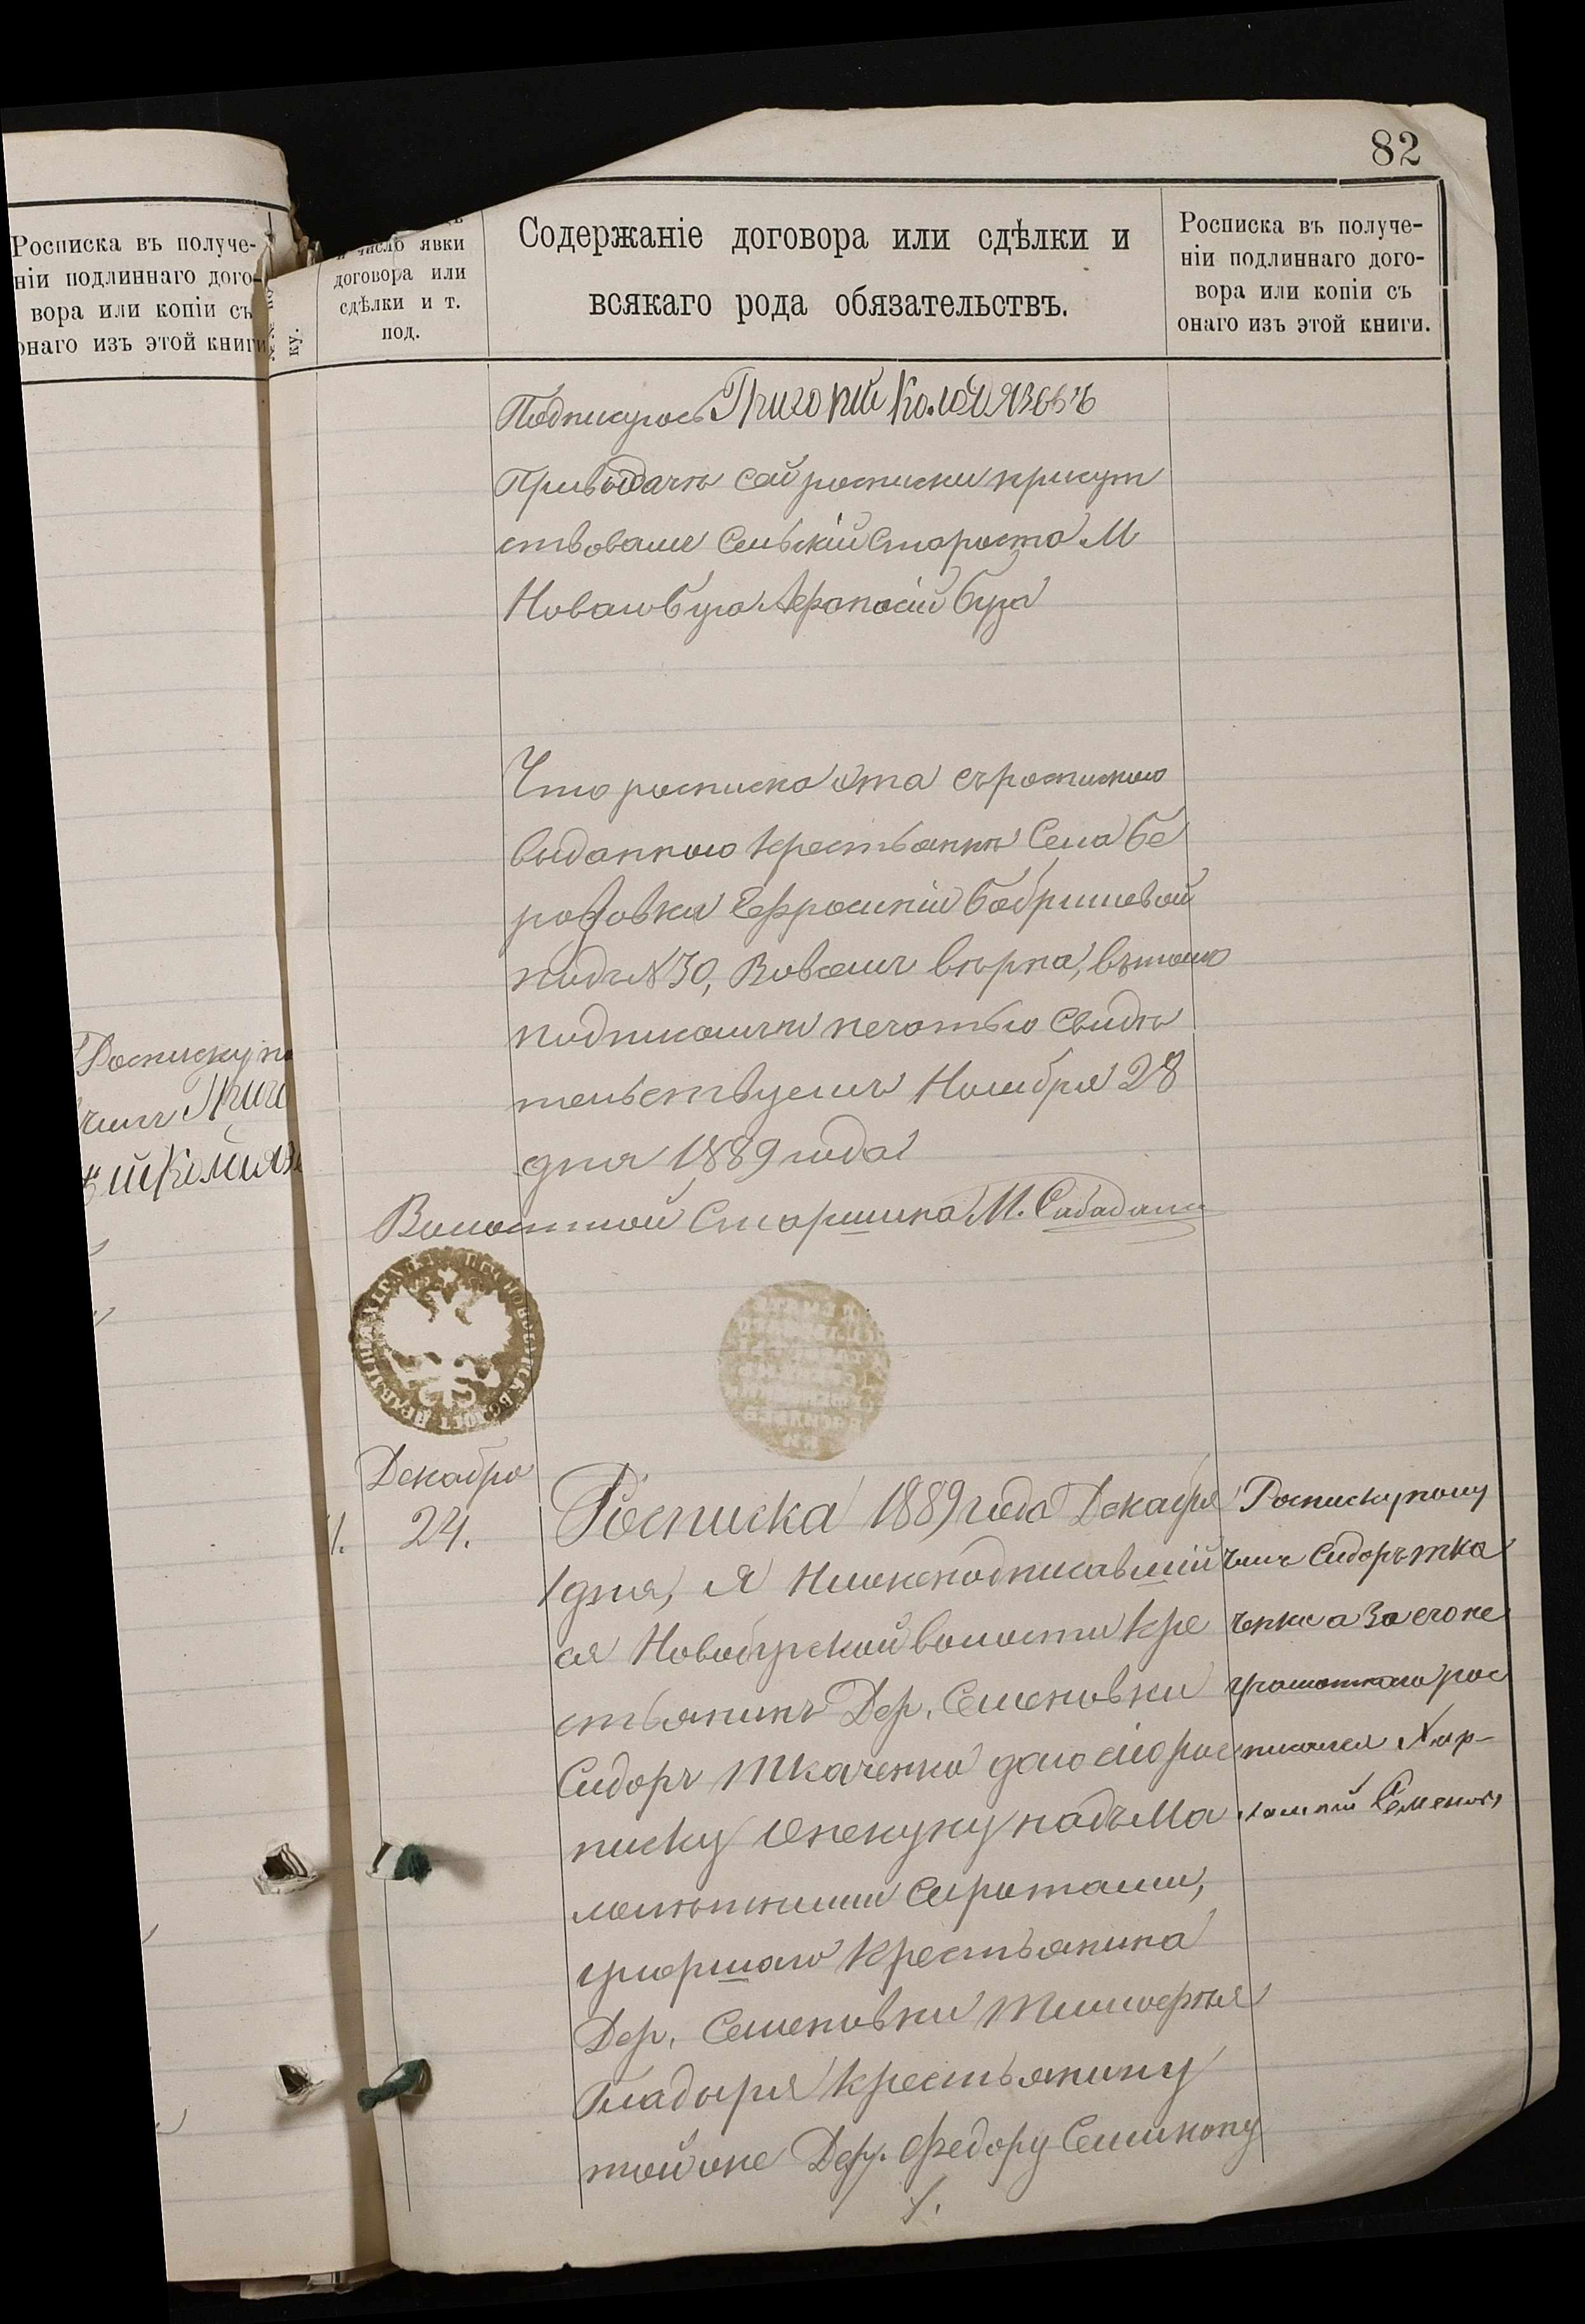 82
Росписка въ получе-
ніи подлиннаго дого-
вора или копіи съ
онаго изъ этой книги
число явки
договора или
сдѣлки и т.
под.
ку.
Содержаніе договора или сдѣлки и
всякаго рода обязательствъ.
Росписка въ получе-
ніи подлиннаго дого-
вора или копіи съ
онаго изъ этой книги.
Подписуюсь Григорій
Привыдачѣ сей росписки присут
ствовалъ Сельскій Староста М
Новаго Буга Афанасій Буза
Что росписка эта съ роспискою
выданною крестьянкѣ Села Бе
Ефросиніи Бобришевой
подъ № 30, вовсемъ вѣрна, вътомъ
подписомъ и печатью свидѣ
тельствуемъ Ноября 28
дня 1889 года
Волостной Старшина М. Сабадаш
Росписку по
чилъ Григо
Декабря
24.
Росписка 1889 года Декабря
1 дня, Я Нижеподписавшій
ся Новобугской волости кре
стьянинъ Дер. Семеновки
Сидоръ Ткаченко даю сію рос
писку Опекуну надъ Ма
лолѣтними Сиротами,
умершаго крестьянина
Дер. Семеновки Тимофея
Гладыря крестьянину
той же Дер. Федору Семикопу
Росписку полу
чилъ Сидоръ Тка
ченко а За его не
грамотнаго рос
писался Хар-
лампій Семенов